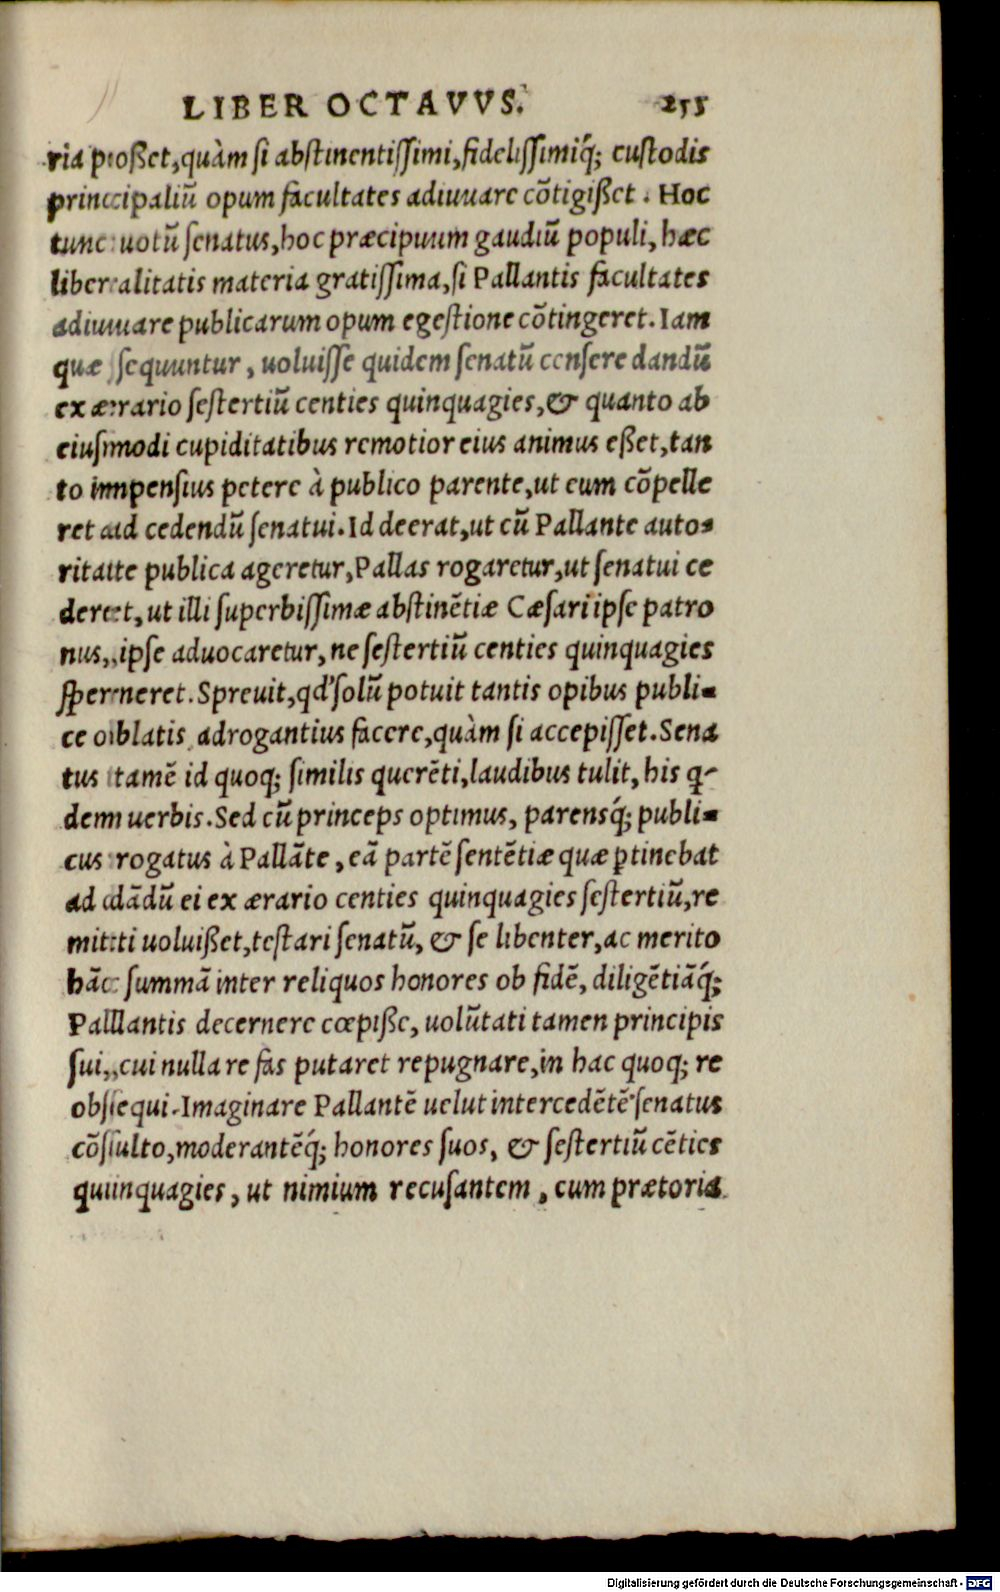 LIBER OCTAVVS. 255
ria proßet, quàm si abstinentissimi, fidelissimiq́; custodis
principaliū opum facultates adiuuare cōtigißet. Hoc
tunc uotū senatus, hoc præcipuum gaudiū populi, hæc
liberalitatis materia gratissima, si Pallantis facultates
adiuuare publicarum opum egestione cōtingeret. Iam
quæ sequuntur, uoluisse quidem senatū censere dandū
ex ærario sestertiū centies quinquagies, & quanto ab
eiusmodi cupiditatibus remotior eius animus eßet, tan
to impensius petere à publico parente, ut eum cōpelle
ret ad cedendū senatui. Id deerat, ut cū Pallante auto-
ritate publica ageretur, Pallas rogaretur, ut senatui ce
deret, ut illi superbissimæ abstinētiæ Cæsar ipse patro
nus, ipse aduocaretur, ne sestertiū centies quinquagies
sperneret. Spreuit, qd' solū potuit tantis opibus publi-
ce oblatis adrogantius facere, quàm si accepisset. Sena
tus tamē id quoq; similis querēti, laudibus tulit, his q-
dem uerbis. Sed cū princeps optimus, parensq́; publi-
cus rogatus à Pallāte, eā partē sentētiæ quæ ꝑtinebat
ad dādū ei ex ærario centies quinquagies sestertiū, re
mitti uoluißet, testari senatū, & se libenter, ac merito
hāc summā inter reliquos honores ob fidē, diligētiāq́;
Pallantis decernere cœpiße, uolūtati tamen principis
sui, cui nulla re fas putaret repugnare, in hac quoq; re
obsequi. Imaginare Pallantē uelut intercedētē senatus
cōsulto, moderantēq́; honores suos, & sestertiū cēties
quinquagies, ut nimium recusantem, cum prætoria
Digitalisierung gefördert durch die Deutsche Forschungsgemeinschaft - DFG